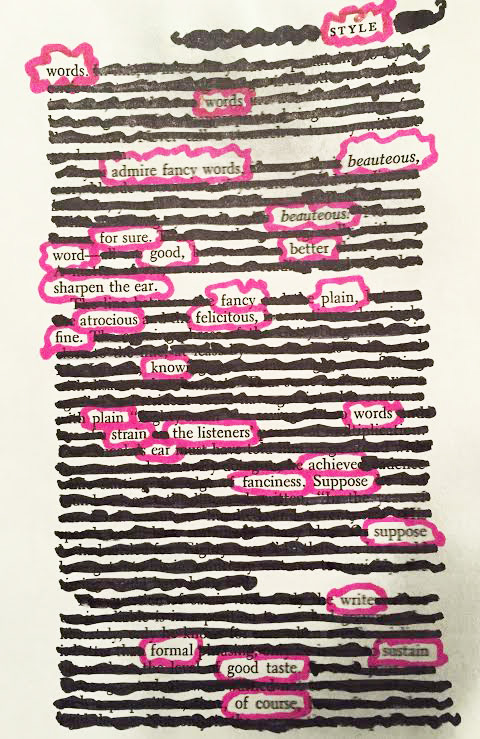 STYLE
words.
words
beauteous,
admire fancy words.
beauteous.
for sure.
word— good, better
sharpen the ear.
fancy plain,
atrocious felicitous,
fine.
know
plain words
strain the listeners
ear
achieve
fanciness. Suppose
suppose
write
formal sustain
good taste.
of course,